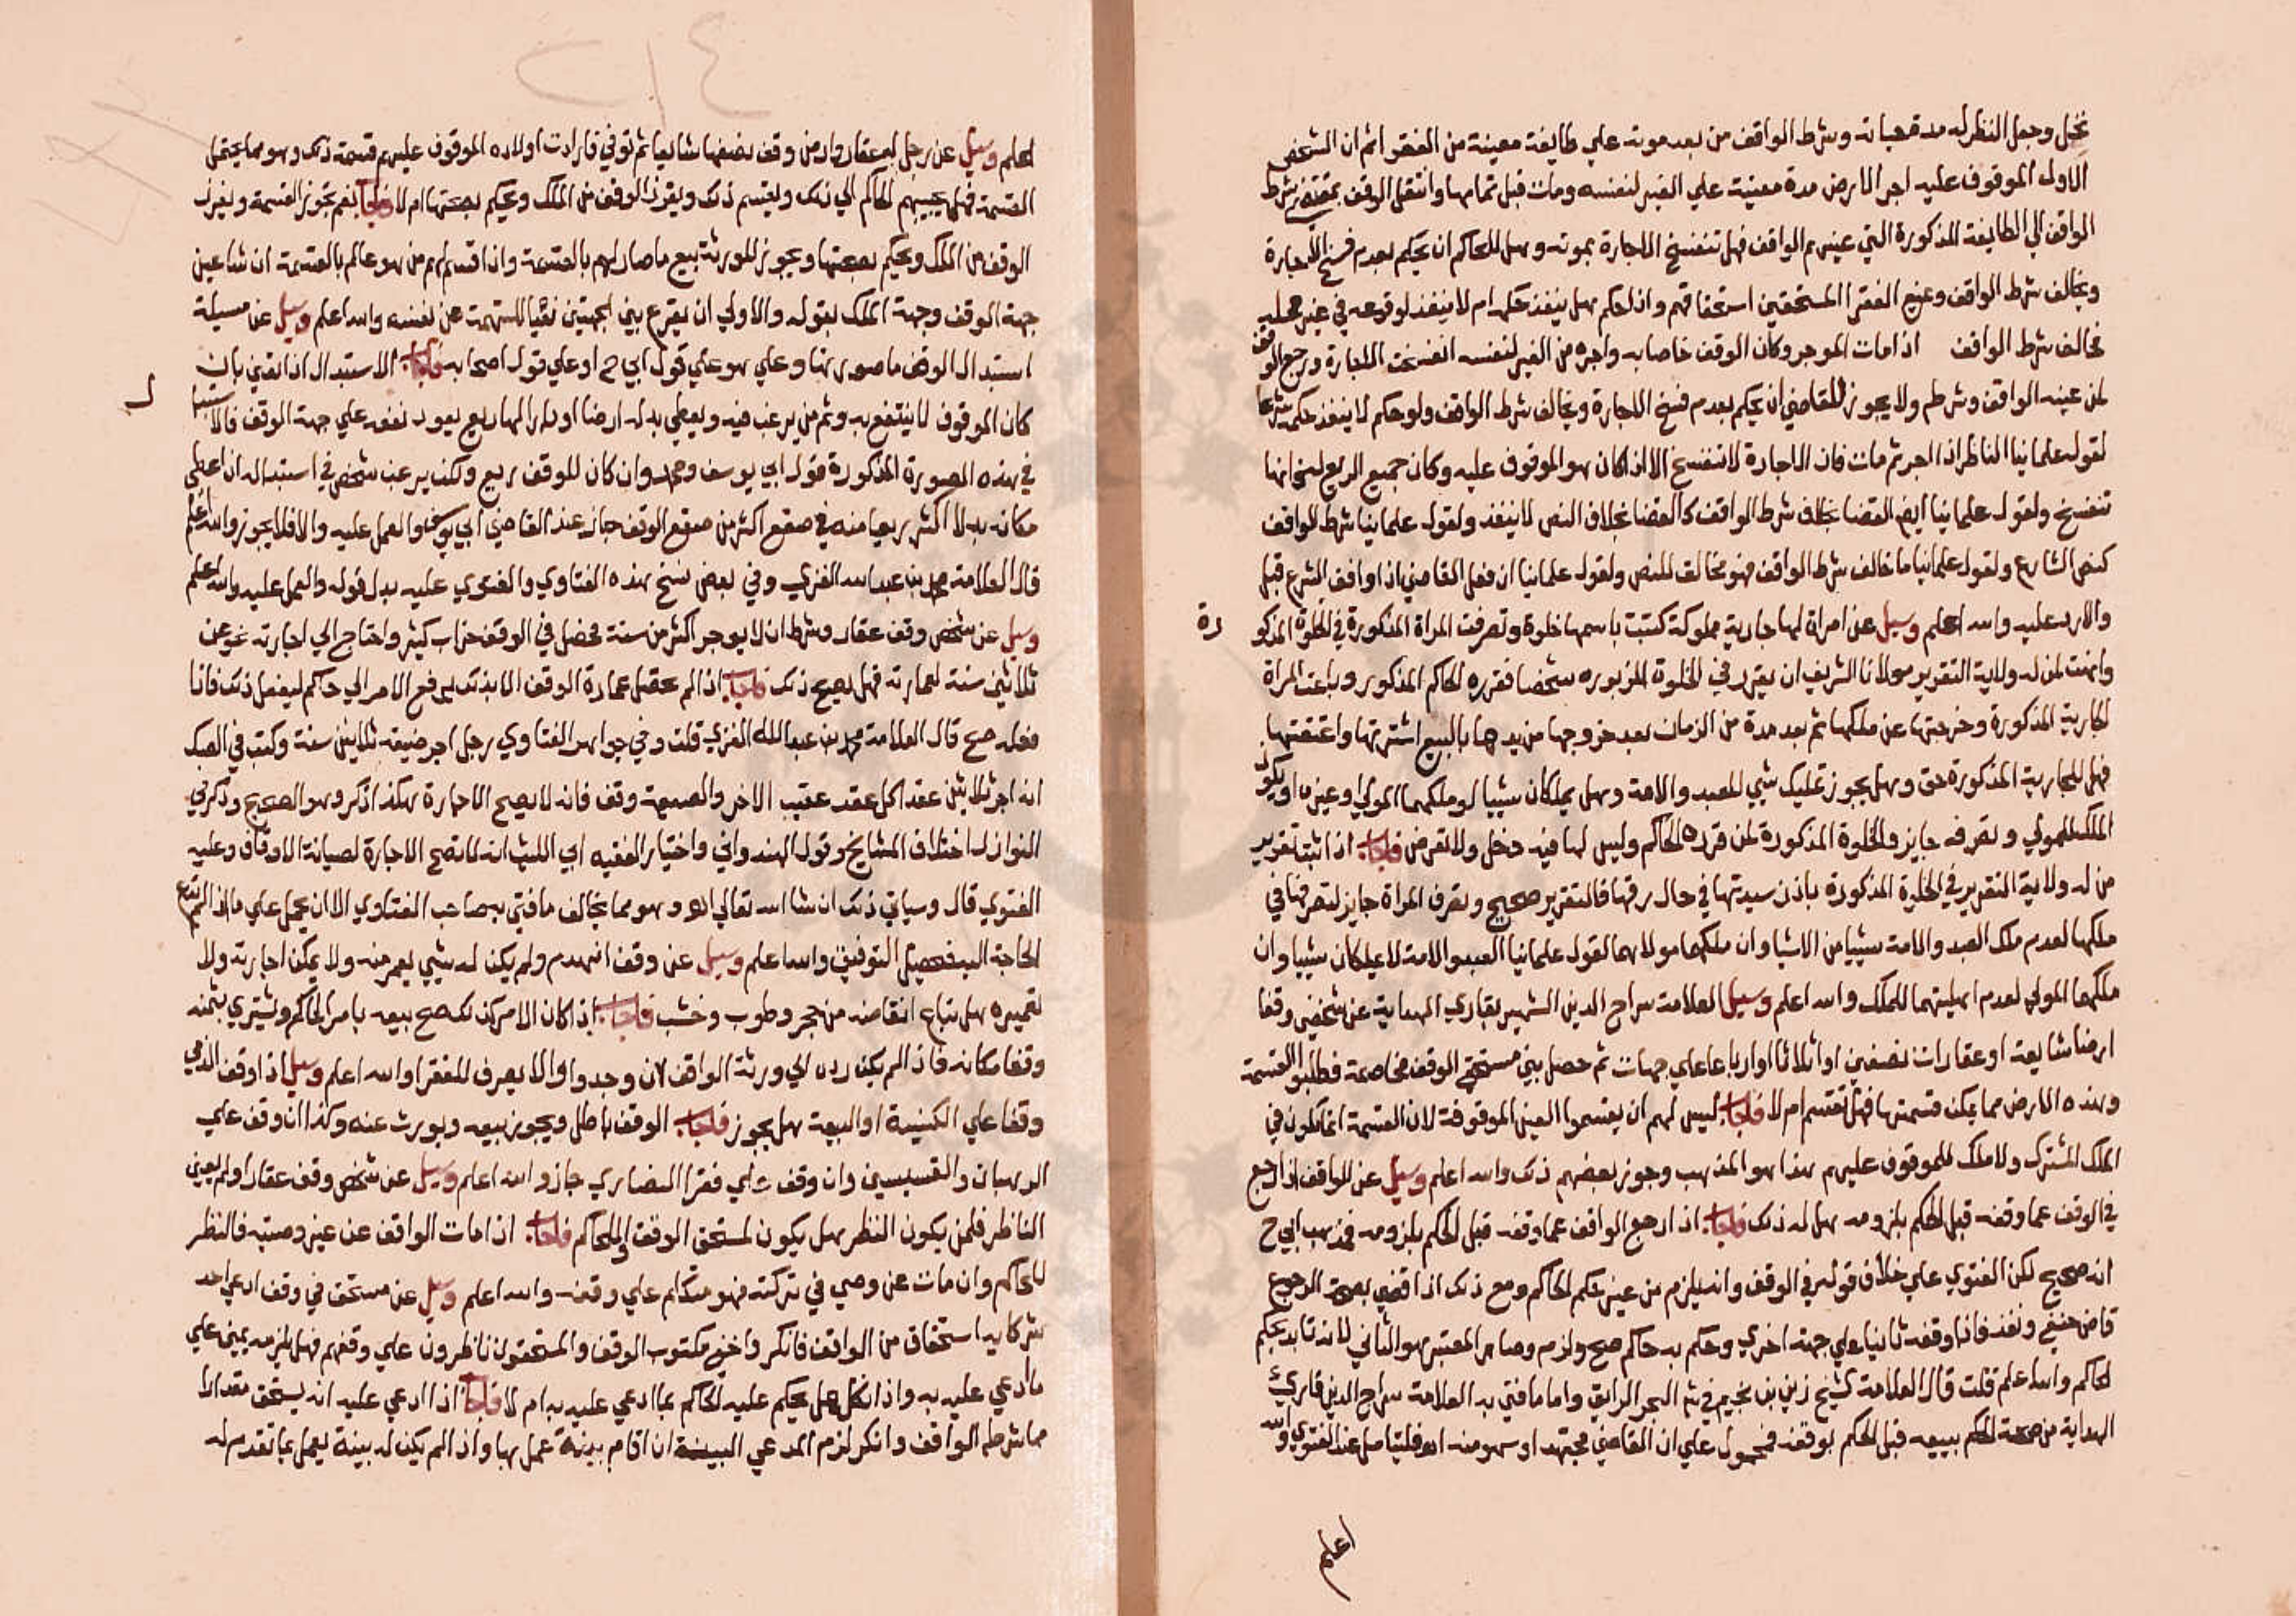 نخيل وجعل النظر له مدة حياته وشرط الواقف من بعد موته علي طايفة معينة من الفقرا ثم ان الشخص
الاول الموقوف عليه اجر الارض مدة معينة علي الغير لنفسه ومات قبل تمامها وانتقل الوقف بمقتضي شرط
الواقف الي الطايفة المذكورة التي عينهم الواقف فهل تنفسخ الاجارة بموته وهل للحاكم ان يحكم بعدم فسخ الاجارة
ويخالف شرط الواقف وعنع الفقرا المستحقين استحقاقهم واذا حكم هل ينفذ حكمه ام لا ينفذ لوقوعه في غير محله
مخالف شرط الواقف اذا مات الموجر وكان الوقف خاصا به واجره من الغير لنفسه انفسخت الاجارة ورجع الوقف
لمن عينه الواقف وشرطه ولا يجوز للقاضي ان يحكم بعدم فسخ الاجارة ويخالف شرط الواقف ولو حكم لا ينفذ حكمه شرعا
لقول علمائنا الناظر اذا اجر ثم مات فان الاجارة لا تنفسخ الا اذا كان هو الموقوف عليه وكان جميع الريع له فانها
تنفسخ ولقول علمائنا ايض القضا بخلاف شرط الواقف كالقضا بخلاف النص لا ينفذ ولقول علمائنا شرط الواقف
كنص الشارع ولقول علمائنا ما خالف شرط الواقف فهو مخالف للنص ولقول علمائنا ان فعل القاضي اذا وافق الشرع قبل
والا رد عليه والله اعلم وسيل عن امراة لها جارية مملوكة كتبت باسمها خلوة وتصرفت المراة المذكورة في الخلوة المذكو
رة
وانهت لمن له ولاية التقرير مولانا الشريف ان يقرر في الخلوة المزبوره شخصا فقرره الحاكم المذكور وباعت المراة
الجارية المذكورة وخرجتها عن ملكها ثم بعد مدة من الزمان بعد خروجها من يدها بالبيع اشترتها واعتقتها
فهل للجارية المذكورة حق وهل يجوز تمليك شي للعبد والامة وهل يملكان شييا لو ملكهما المولي وغيره او يكون
الملك للمولي وتصرفه جايز والخلوة المذكورة لمن قرره الحاكم وليس لها فيه دخل ولا تعرض فاجاب اذا ثبت تقرير
من له ولاية التقرير في الخلوة المذكورة باذن سيدتها في حال رقها فالتقرير صحيح وتصرف المراة جايز لتصرفها في
ملكها لعدم ملك العبد والامة شييا من الاشيا وان ملكهما مولاهما لقول علمائنا العبد والامة لا يملكان شييا وان
ملكهما المولي لعدم اهليتهما للملك والله اعلم وسيل العلامة سراج الدين الشهير بقاري الهداية عن شخص وقفا
ارضا شايعة او عقارات نصفين او اثلاثا او ارباعا علي جهات ثم حصل بين مستحقي الوقف مخاصمة فطلبوا القسمة
وهذه الارض مما يمكن قسمتها فهل تقسم ام لا فاجاب ليس لهم ان يقسموا العين الموقوفة لان القسمة انما تكون في
الملك المشترك ولا ملك للموقوف عليهم هذا هو المذهب وجوز بعضهم ذلك والله اعلم وسيل عن الواقف اذا رجع
في الوقف عما وقفه قبل الحكم بلزومه هل له ذلك فاجاب اذا رجع الواقف عما وقفه قبل الحكم بلزومه فمذهب ابي ح
انه صحيح لكن الفتوي علي خلاف قوله في الوقف وانه يلزم من غير حكم الحاكم ومع ذلك اذا قضي بصحة الرجوع
قاض حنفي ونفذ فاذا وقفه ثانيا علي جهة اخري وحكم به حاكم صح ولزم وصار المعتبر هو الثاني لانه تايد بحكم
الحاكم والله اعلم قلت قال العلامة الشيخ زين بن نجيم في شرح البحر الرائق واما ما افتي به العلامة سراج الدين قاري
الهداية من صحة الحكم ببيعه قبل الحكم بوقفه فمحمول علي ان القاضي مجتهد او سهو منه اهـ فليتامل عند الفتوي والله
اعلم
اعلم وسيل عن رجل له عقار واراد من وقف نصفها شايعا ثم توفي فارادت اولاده الموقوف عليهم قسمة ذلك وهو مما يحتمل
القسمة فهل يجيبهم الحاكم الي ذلك ويقسم ذلك ويفرز الوقف من الملك ويحكم بصحتها ام لا فاجاب نعم تجوز القسمة ويفرز
الوقف من الملك ويحكم بصحتها ويجوز للورثة بيع ما صار لهم بالقسمة واذا قسم بينهم من هو عالم بالقسمة ان شا عين
جهة الوقف وجهة الملك بقوله والاولي ان يقرع بين الجهتين نفيا للتهمة عن نفسه والله اعلم وسيل عن مسيلة
استبدال الوقف ما صورتها وعلي هو علي قول ابي ح او علي قول اصحابه فاجاب الاستبدال اذا تعين بان
كان الموقوف لا ينتفع به وثم من يرغب فيه ويعطي بدله ارضا او دارا لها ريع يعود نفعه علي جهة الوقف فالاستبدا
ل
في هذه الصورة المذكورة قول ابي يوسف ومحمد وان كان للوقف ريع ولكن يرغب شخص في استبداله ان اعطي
مكانه بدلا اكثر ريعا منه في صقع اكثر من صقع الوقف جاز عند القاضي ابي يوسف والعمل عليه والا فلا يجوز والله اعلم
قال العلامة محمد بن عبد الله الغزي وفي بعض نسخ هذه الفتاوي والفتوي عليه بدل قوله والعمل عليه والله اعلم
وسيل عن شخص وقف عقار وشرط ان لا يوجر اكثر من سنة فحصل في الوقف خراب كثير واحتاج الي اجارته نحو من
ثلاثين سنة لعمارته فهل يصح ذلك فاجاب اذا لم تحصل عمارة الوقف الا بذلك يرفع الامر الي حاكم ليفعل ذلك فاذا
فعله صح قال العلامة محمد بن عبد الله الغزي قلت وفي جواهر الفتاوي رجل اجر ضيعة ثلاثين سنة وكتب في الصك
انه اجر ثلاثين عقدا كل عقد عقيب الاخر والضيعة وقف فانه لا يصح الاجارة هكذا ذكر وهو الصحيح وذكر في
النوازل اختلاف المشايخ وقول الهندواني واختيار الفقيه ابي الليث انه لا تصح الاجارة لصيانة الاوقاف وعليه
الفتوي قال وسياتي ذلك ان شا الله تعالي اهـ وهو مما يخالف ما افتي به صاحب الفتاوي الا ان يحمل علي ما اذا لم تقع
الحاجة اليه فحصل التوفيق والله اعلم وسيل عن وقف انهدم ولم يكن له شيي يعمر منه ولا يمكن اجارته ولا
تعميره هل تباع انقاضه من حجر وطوب وخشب فاجاب اذا كان الامر كذلك صح بيعه بامر الحاكم ويشتري بثمنه
وقفا مكانه فاذا لم يكن رده الي ورثة الواقف لان وجدوا والا يصرف للفقرا والله اعلم وسيل اذا وقف الذمي
وقفا علي الكنيسة او البيعة هل يجوز فاجاب الوقف باطل ويجوز بيعه ويورث عنه وكذا ان وقف علي
الرهبان والقسيسين وان وقف علي فقرا النصاري جاز والله اعلم وسيل عن شخص وقف عقارا ولم يعين
الناظر فلمن يكون النظر هل يكون لمستحق الوقف او للحاكم فاجاب اذا مات الواقف عن غير وصية فالنظر
للحاكم وان مات عن وصي في تركته فهو متكلم علي وقفه والله اعلم وسيل عن مستحق في وقف ادعي احد
شركايه استحقاق من الواقف فانكر واخفي مكتوب الوقف والمستحقون ناظرون علي وقفهم فهل يلزمه يمين علي
ما ادعي عليه به واذا نكل هل يحكم عليه الحاكم بما ادعي عليه به ام لا فاجاب اذا ادعي عليه انه يستحق مقدارا
مما شرطه الواقف وانكر لزم المدعي البينة ان اقام بينة عمل بها واذا لم يكن له بينة يعمل بما تقدم له